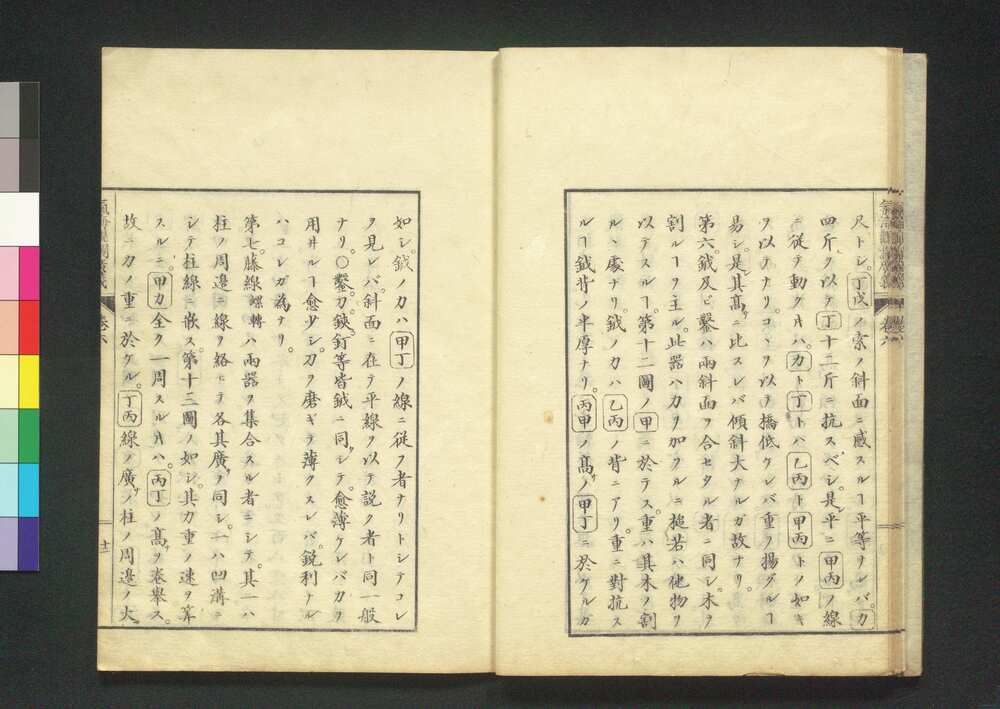 尺トシ。丁戊ノ索ノ斜面ニ感スルヿ平等ナレバ。力
四斤ヲ以テ丁十二斤ニ抗スベシ。是平ニ甲丙ノ線
ニ從テ動クㇳキハ。力ト丁トハ乙丙ト甲丙トノ如キ
ヲ以テナリ。コヽヲ以テ橋低ケレバ重ヲ揚グルヿ
易シ。是其高サニ比スレバ傾斜大ナルガ故ナリ。
第六。鉞及ビ鑿ハ兩斜面ヲ合セタル者ニ同シ。木ヲ
割ルヿヲ主ル。此器ハ力ヲ加フルニ槌若ハ他物ヲ
以テスルヿ。第十二圖ノ甲ニ於テス。重ハ其木ノ割
ルヽ處ナリ。鉞ノ力ハ乙丙ノ背ニアリ。重ニ對抗ス
ルヿ鉞背ノ半厚ナリ。丙甲ノ高サノ甲丁ニ於ケルガ
如シ。鉞ノ力ハ甲丁ノ線ニ從フ者ナリトシテコレ
ヲ見レバ。斜面ニ在テ平線ヲ以テ説ク者ト同一般
ナリ。〇鑿。刀。鋏。釘等皆鉞ニ同シテ。愈薄ケレバ力ヲ
用井ルヿ愈少シ。刀ヲ磨ギテ薄クスレバ。鋭利ナル
ハコレガ為ナリ。
第七。藤線螺轉ハ兩器ヲ集合スル者ニシテ。其一ハ
柱ノ周邊ニ線ヲ絡ヒテ各其廣サヲ同シ。一ハ凹溝ニ
シテ柱線ニ嵌ス。第十三圖ノ如シ。其力重ノ速ヲ算
スルニ。甲力全ク一周スルㇳキハ。丙丁ノ高サヲ卷舉ス。
故ニ力ノ重ニ於ケル。丁丙線ノ廣サノ柱ノ周邊ノ大
十二